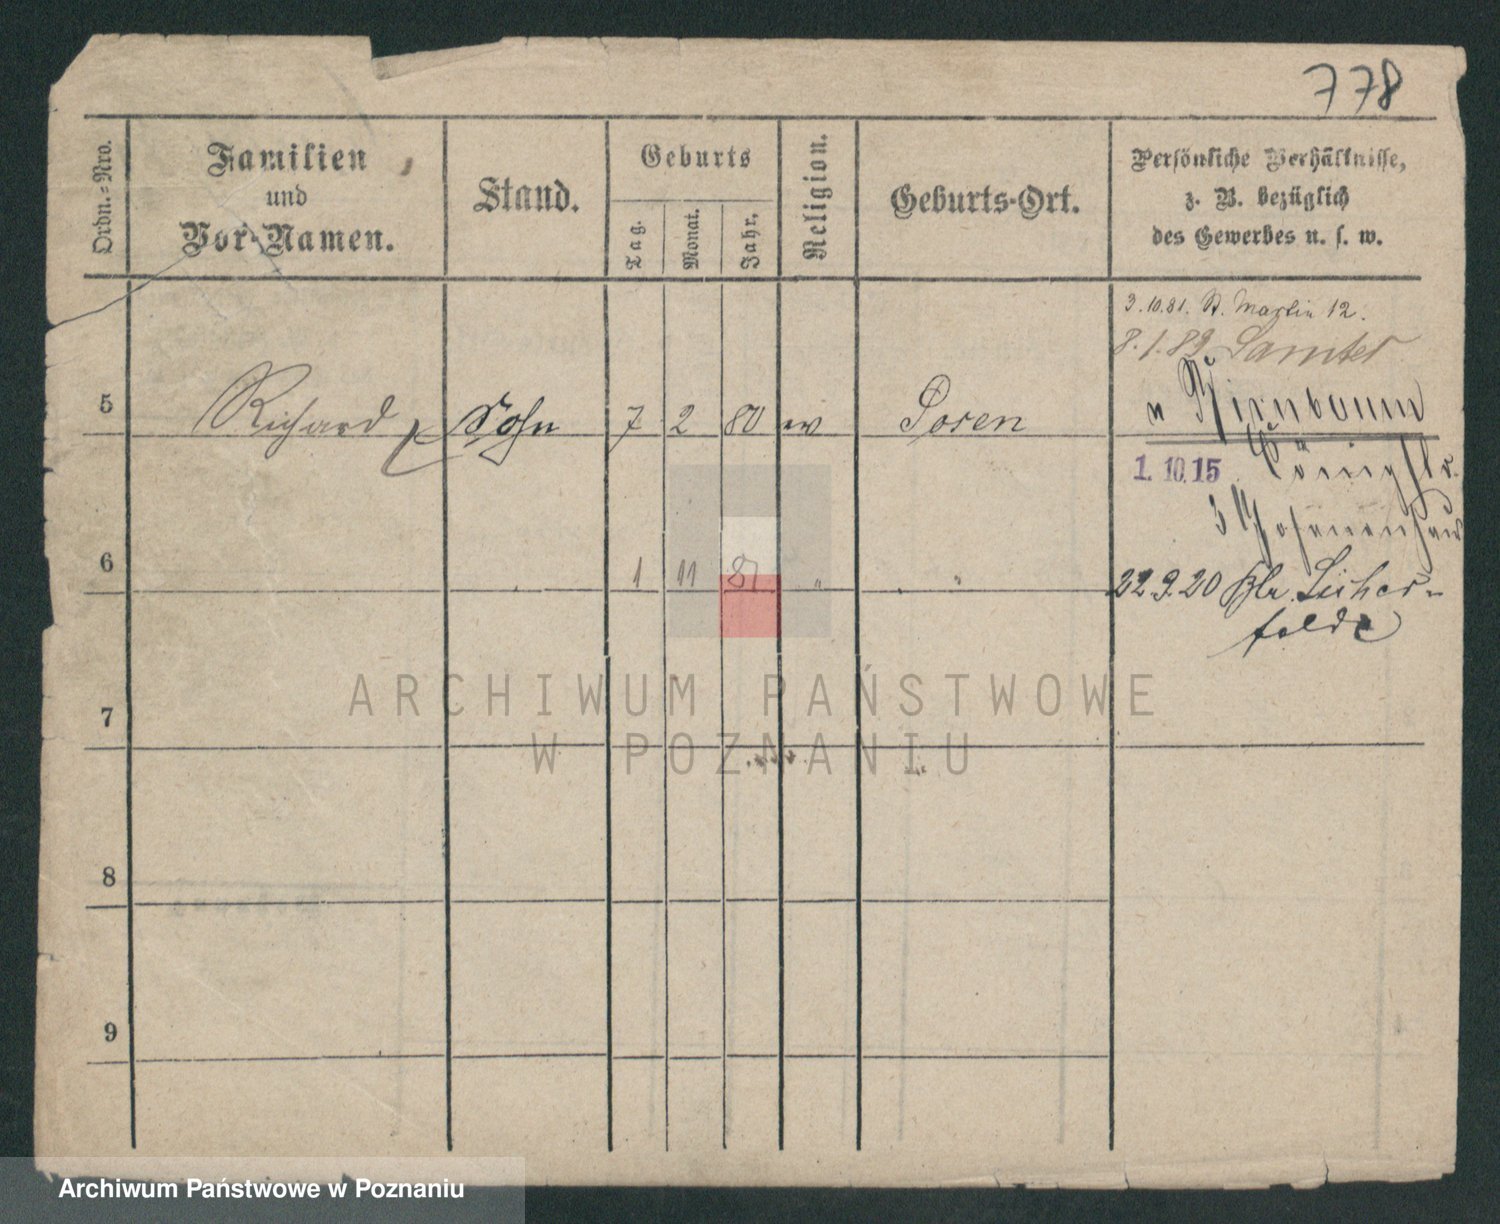 778
Ordn.-Nro.
Familien
und
Vor-Namen.
Stand.
Geburts
Tag.
Monat.
Jahr.
Religion.
Geburts-Ort.
Persönliche Verhältnisse,
z. B. bezüglich
des Gewerbes u. s. w.
3.10.81. St. Martin 12.
8.1.89 Samter
n Birnbaum
5 Richard Sohn 7 2 80 Posen
1.10.15 Königstr.
3 Posenerhaus
6 1 11 81 " "
22.9.20 Bln Lichter-
felde
ARCHIWUM PAŃSTWOWE
W POZNANIU
7
8
9
Archiwum Państwowe w Poznaniu